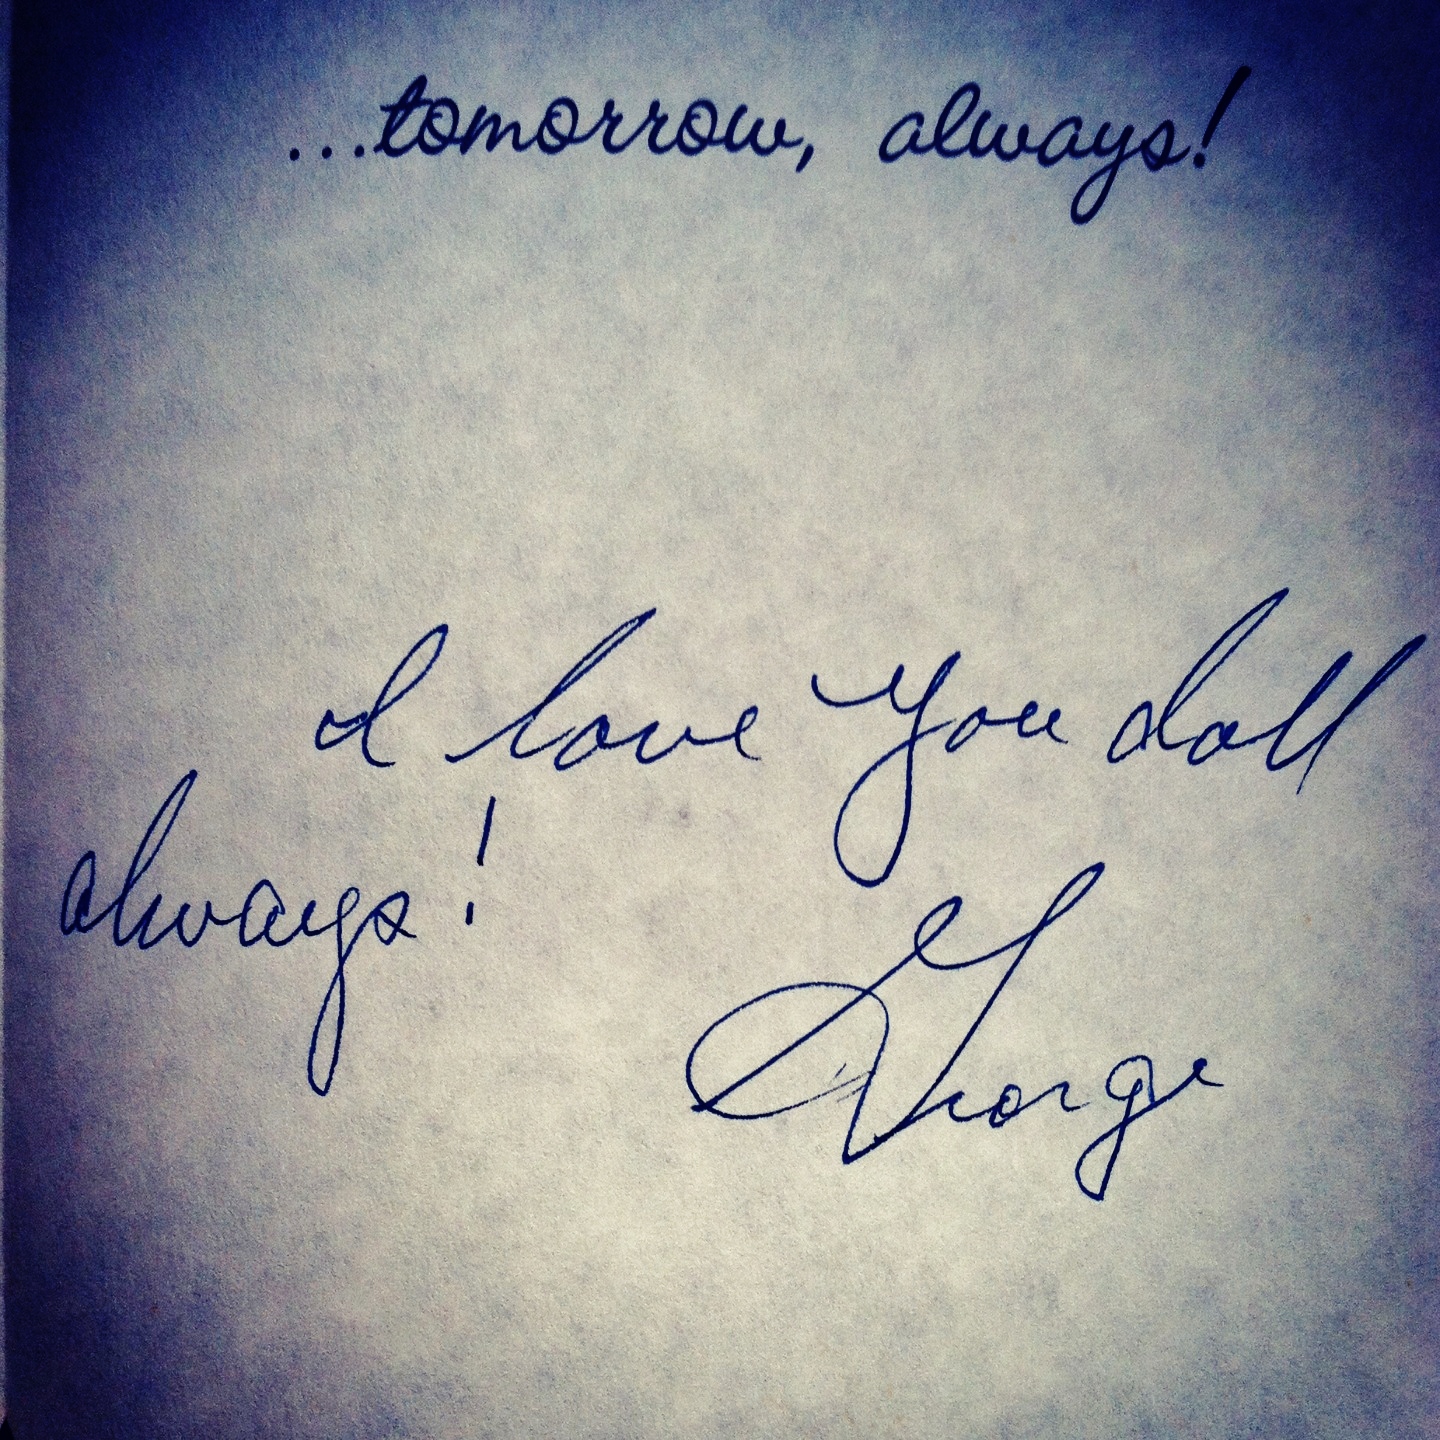 ...tomorrow, always!
I love you doll
always!
George